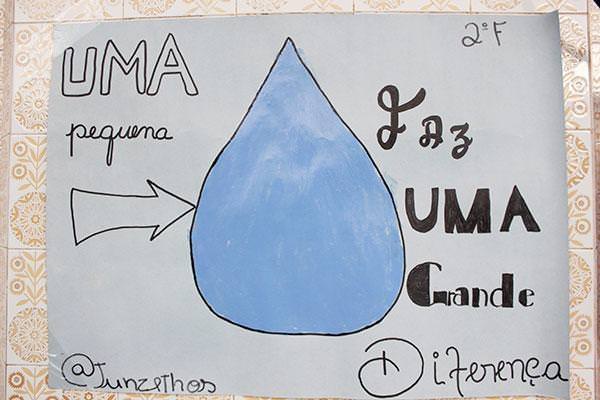 2º F
UMA
pequena
Faz
UMA
Grande
Diferença
@Tunzethos